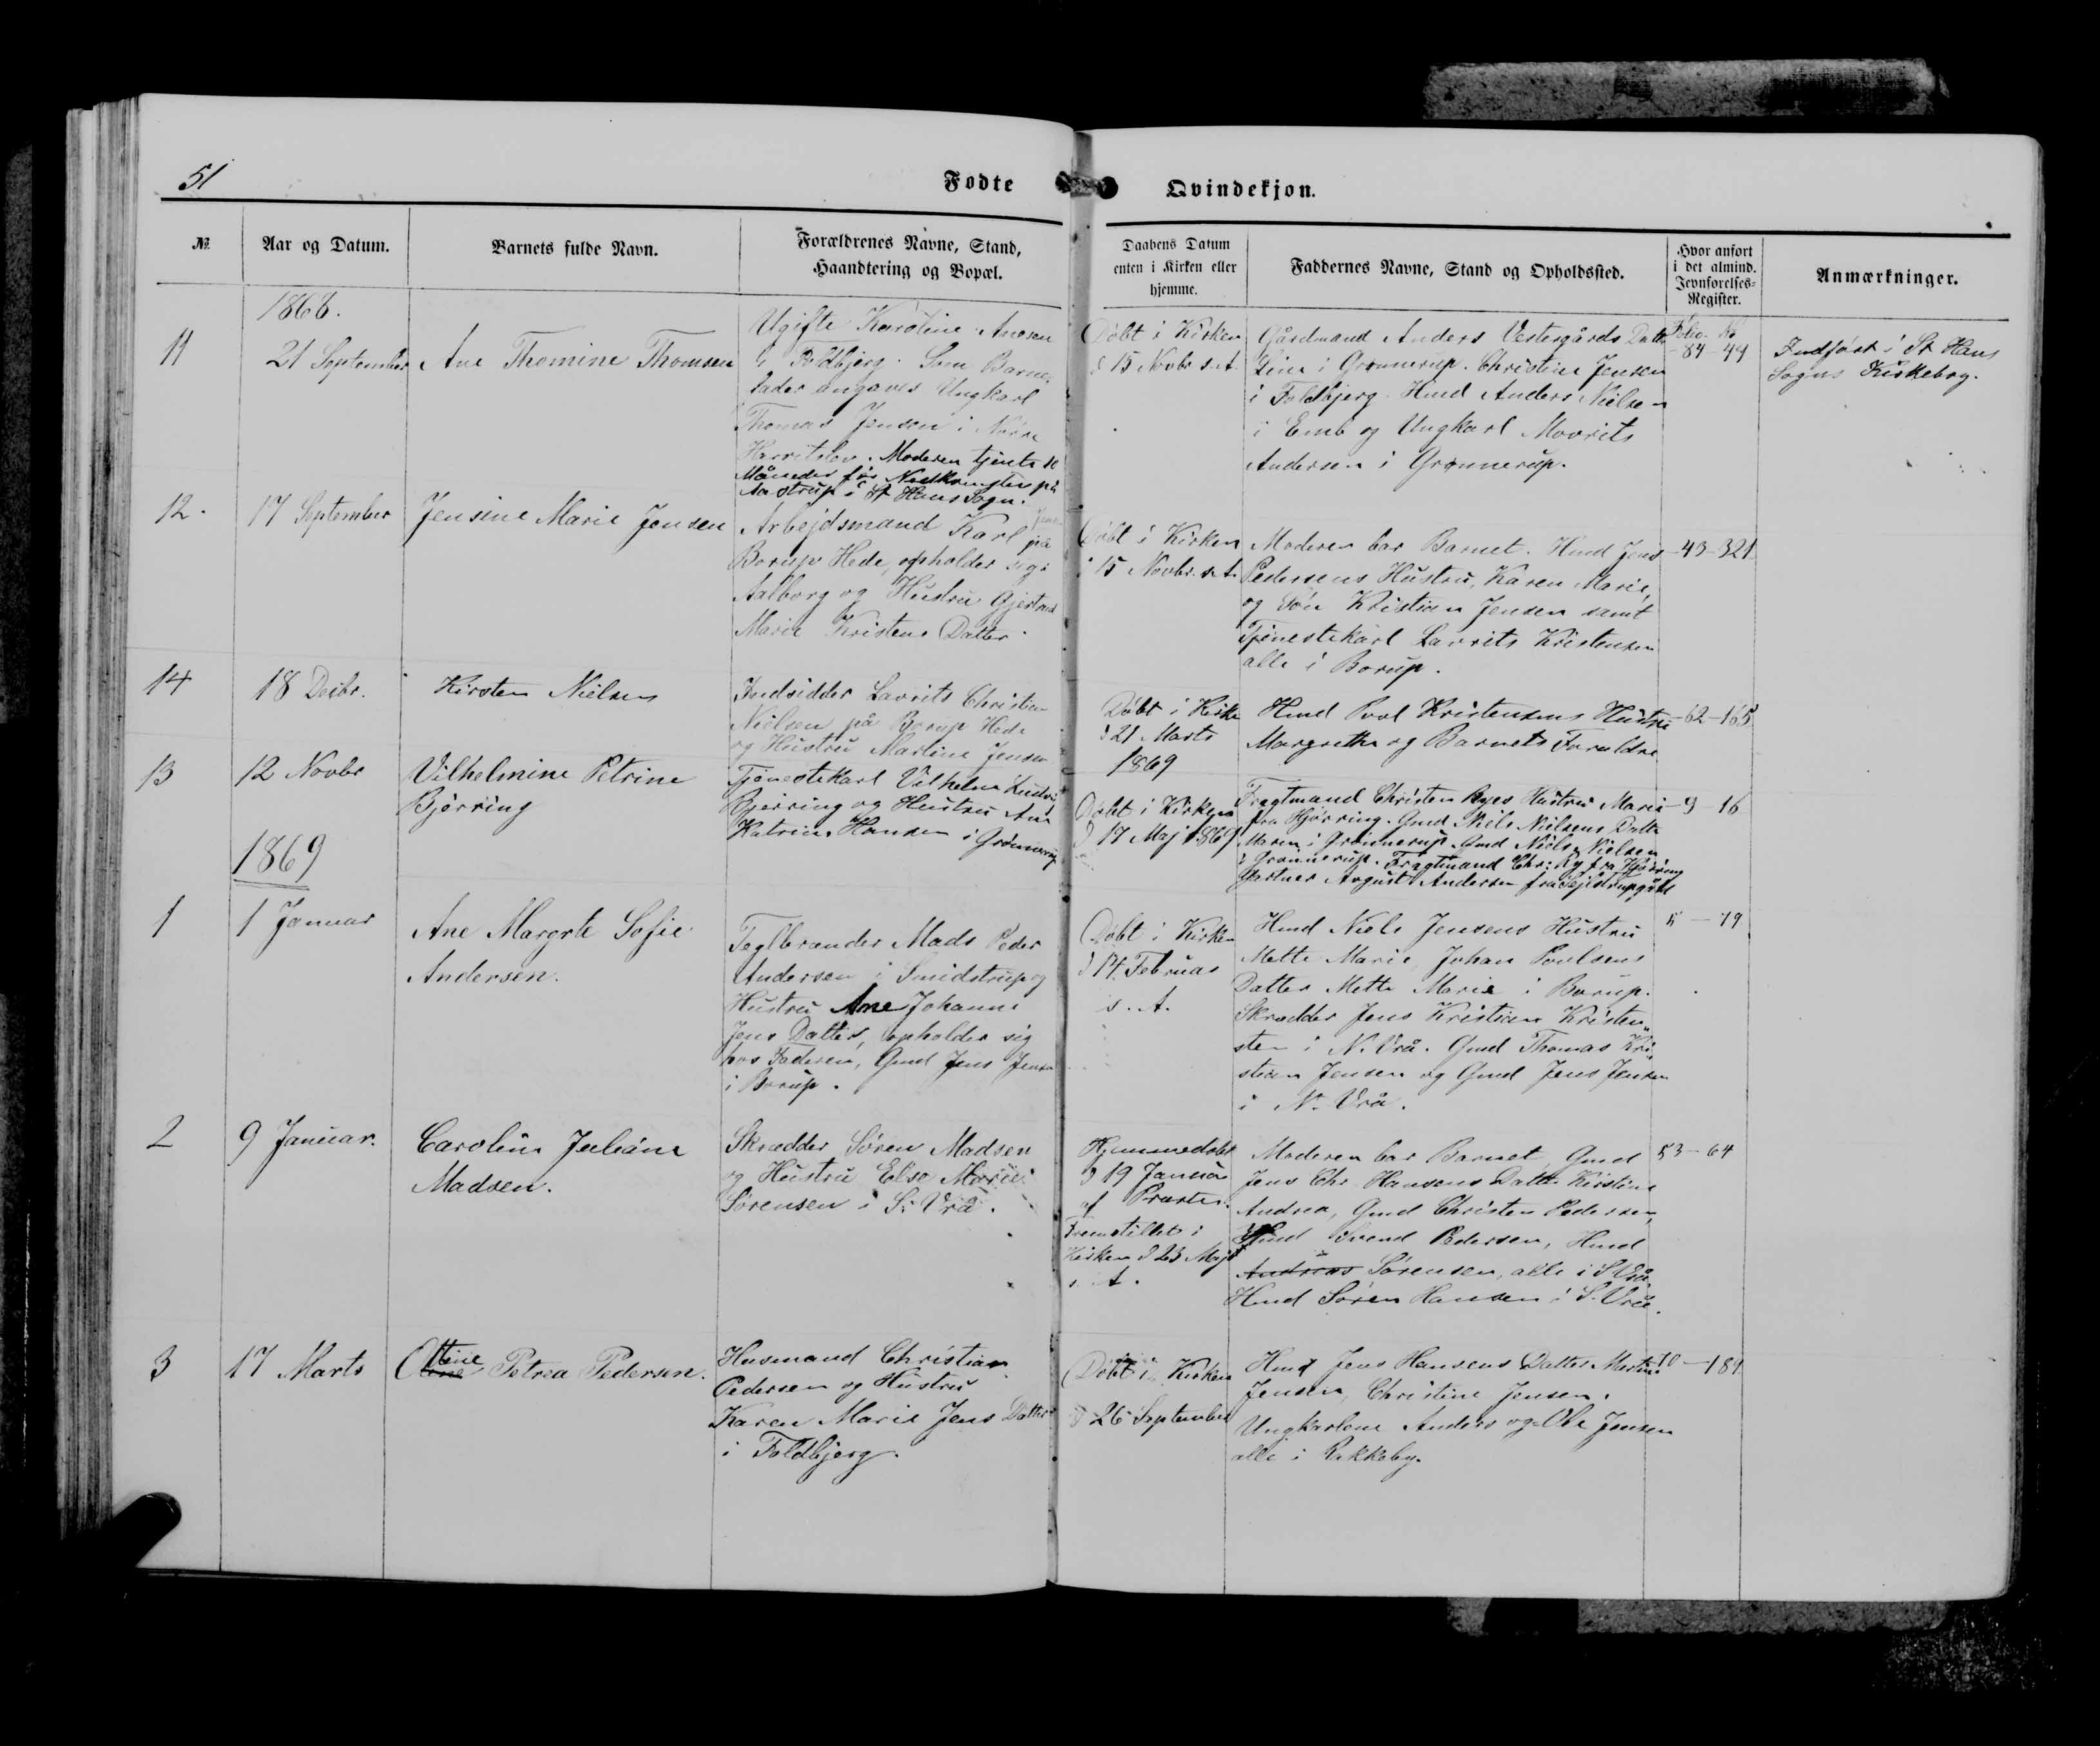 51
Fødte
Qvindekjøn.
№
Aar og Datum.
Barnets fulde Navn.
Forældrenes Navne, Stand,
Haandtering og Bopæl.
Daabens Datum
enten i Kirken eller
hjemme.
Faddernes Navne, Stand og Opholdssted.
Hvor anført
i det almind.
Jevnførelses-
Register.
Anmærkninger.
1868.
11
21 September
Ane Thomine Thomsen
Ugifte Karoline
i Foldbjerg. Som Barne-
fader angaves Ungkarl
Thomas Jensen i Nørre
Harritslev. Moderen tjente 10
Måneder før Nedkomsten på
Aastrup i St Hans Sogn.
Døbt i Kirken
d 15 Novbr s. A.
Gårdmand Anders Vestergårds Datter
Line i Grønnerup. Christine Jensen
i Foldbjerg. Hmd Anders Nielsen
i Emb og Ungkarl Movrits
Andersen i Grønnerup.
Folio - No
- 84 - 49
Indført i St Hans
Sogns Kirkebog.
12.
17 September
Jensine Marie Jensen
Arbejdsmand Karl Jensen
på
Borup Hede, opholder sig i
Aalborg og Hustru Gjertrud
Marie Kristens Datter.
Døbt i Kirken
d 15 Novbr. s. A.
Moderen bar Barnet. Hmd Jens
Pedersens Hustru, Karen Marie,
og Søn Kristian Jensen samt
Tjenestekarl Lavrits Kristensen
alle i Borup.
- 43 - 321
14
18 Decbr.
Kirsten Nielsen
Indsidder Lavrits Christian
Nielsen på Borup Hede
og Hustru Martine Jensen
Døbt i Kirke
d 21 Marts
1869
Hmd Povl Kristensens Hustru
Margrethe og Barnets Forældre
- 62 - 165
13
12 Novbr
Vilhelmine Petrine
Bjørring
Tjenestekarl Vilhelm Ludvig
Bjørring og Hustru Ane
Katrine Hansen i Grønnerup
Døbt i Kirken
d 17 Maj 1869
Fragtmand Christen Ryes Hustru Marie
fra Hjørring. Gmd Niels Nielsens Datter
Maren i Grønnerup. Gmd Niels Nielsen
i Grønnerup. Fragtmand Chr: Ry fra Hjørring
Gartner Avgust Andersen fra Sejlstrupgård
- 9 - 16
1869
1
1 Januar
Ane Margrte Sofie
Andersen.
Teglbrænder Mads Peder
Andersen i Smidstrup og
Hustru Ane Johanne
Jens Datter, opholder sig
hos Faderen, Gmd Jens Jensen
i Borup.
Døbt i Kirken
d 14. Februar
s. A.
Hmd Niels Jensens Hustru
Mette Marie, Johan Poulsens
Datter Mette Marie i Borup.
Skrædder Jens Kristian Kristen-
sen i N. Vrå. Gmd Thomas Kri-
stian Jensen og Gmd Jens Jensen
i N. Vrå.
5 - 79
2
9 Januar.
Caroline Juliane
Madsen.
Skrædder Søren Madsen
og Hustru Else Marie
Sørensen i S. Vrå.
Hjemmedøbt
d 19 Januar
af Præsten.
Fremstillet i
Kirken d 23 Maj
s. A.
Moderen bar Barnet, Gmd
Jens Chr. Hansens Datter Kirstine
Andrea, Gmd Christen Pedersen,
Hmd Svend Pedersen, Hmd
Andreas Sørensen, alle i S. Vrå.
Hmd Søren Hansen i S. Vrå.
53 - 64
3
17 Marts
Ottine Petrea Pedersen.
Husmand Christian
Pedersen og Hustru
Karen Marie Jens Datter
i Foldbjerg.
Døbt i Kirken
d 26 September
Hmd Jens Hansens Datter Martine
Jensen, Christine Jensen.
Ungkarlene Anders og Ole Jensen
alle i Rakkeby.
70 - 184